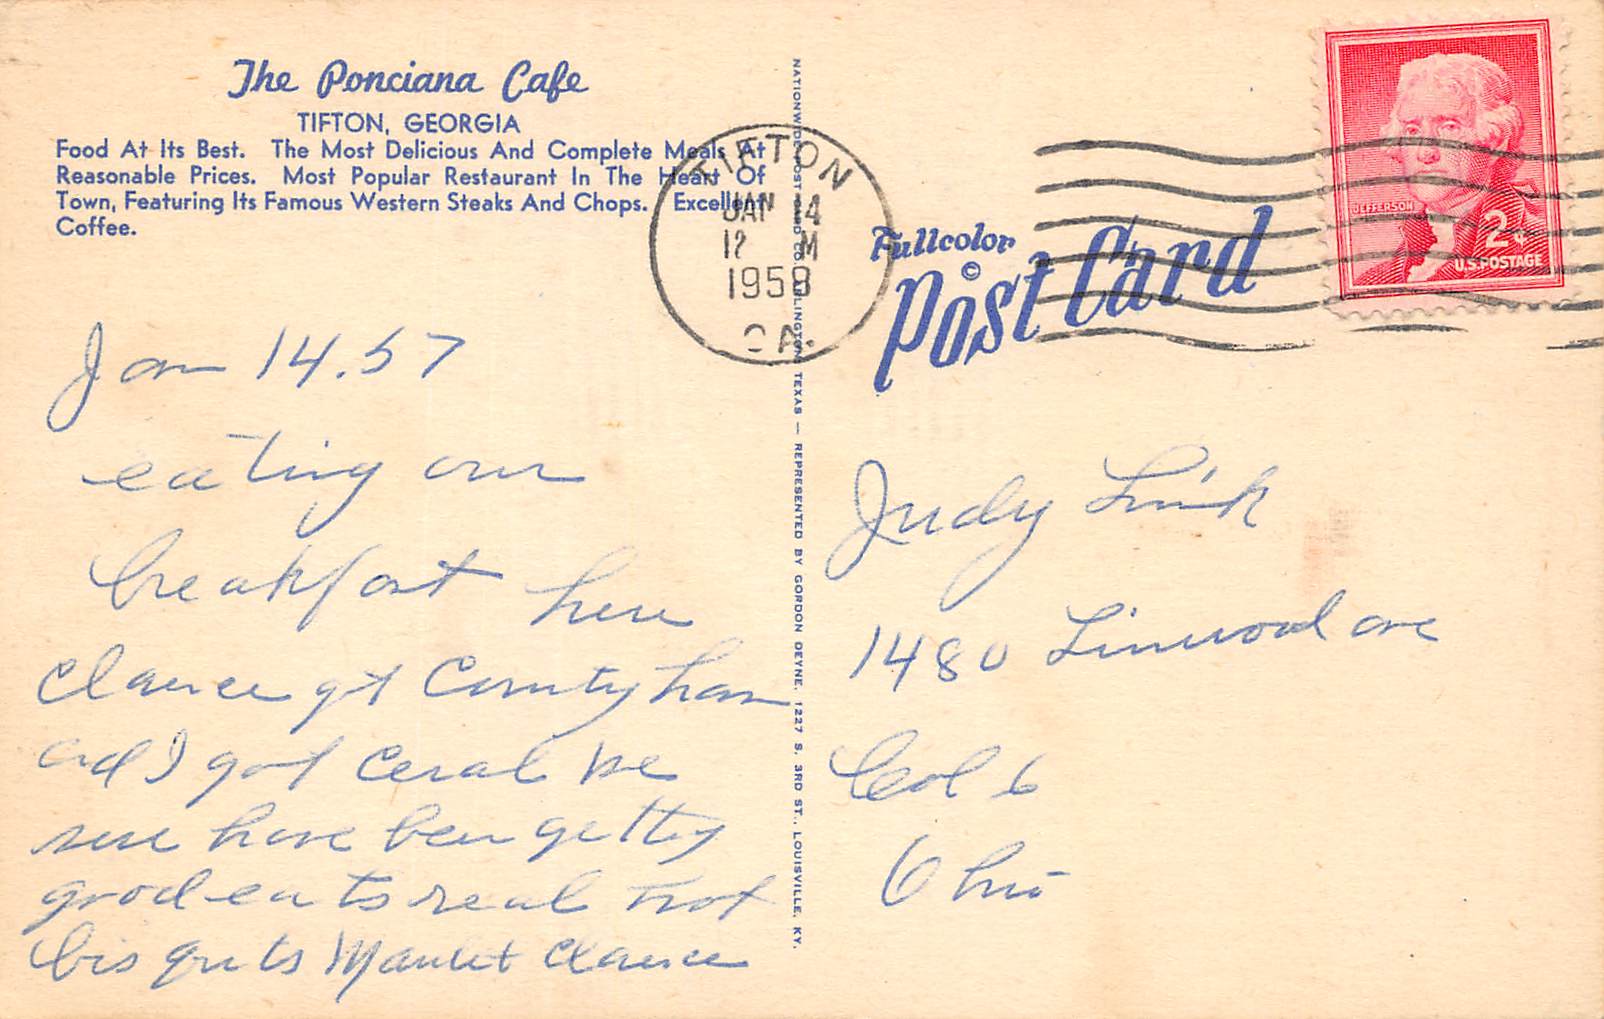 The Ponciana Cafe
TIFTON, GEORGIA
Food At Its Best. The Most Delicious And Complete Meals At
Reasonable Prices. Most Popular Restaurant In The Heart Of
Town, Featuring Its Famous Western Steaks And Chops. Excellent
Coffee.
Jan 14.57
eating our
breakfast here
Clarence got County ham
and I got ceral we
sure have been getting
good eats real hot
bisquits Clarence
NATIONWIDE POST CARD CO. ARLINGTON, TEXAS — REPRESENTED BY GORDON DEYNE, 1227 S. 3RD ST., LOUISVILLE, KY.
TIFTON
JAN 14
12 M
1958
GA.
Fullcolor
Post Card
©
JEFFERSON
2¢
U.S. POSTAGE
Judy Link
1480 Linwood ave
Col 6
Ohio